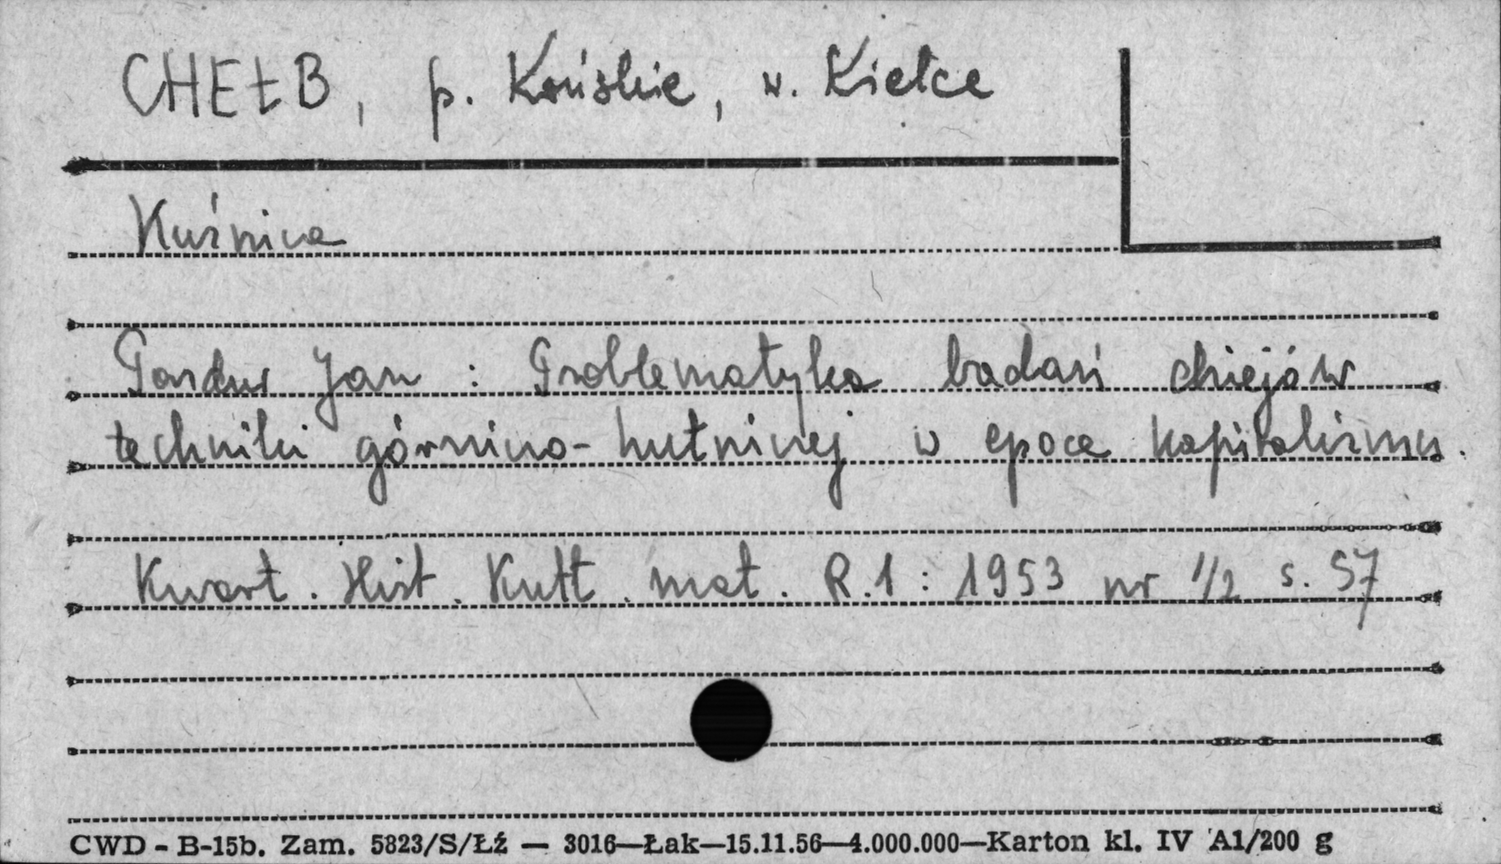 CHEŁB, p. Końskie, w. Kielce
Kuźnica
Pazdur Jan : Problematyka badań dziejów
techniki górniczo-hutniczej w epoce kapitalizmu.
Kwart. Hist. Kult. mat. R.1 : 1953 nr 1/2 s. 57
CWD - B-15b. Zam. 5823/S/Łź — 3016—Łak—15.11.56—4.000.000—Karton kl. IV A1/200 g